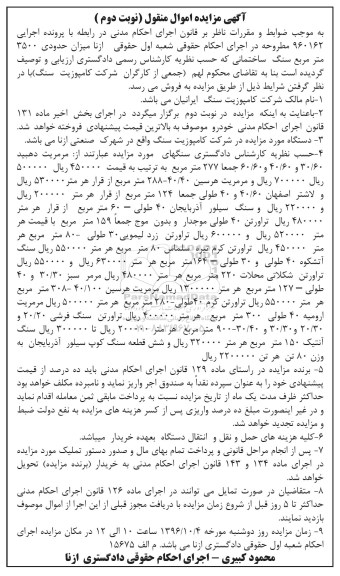 آگهی مزایده اموال منقول (نوبت دوم )
به موجب ضوابط و مقررات ناظر بر قانون اجرای احکام مدنی در رابطه با پرونده اجرایی
۹۶۰۱۶۲ مطروحه در اجرای احکام حقوقی شعبه اول حقوقی ازنا میزان حدودی ۳۵۰۰
متر مربع سنگ ساختمانی که حسب نظریه کارشناس رسمی دادگستری ارزیابی و توصیف
گردیده است بنا به تقاضای محکوم لهم (جمعی از کارگران شرکت کامپوزیت سنگ)با در
نظر گرفتن شرایط ذیل از طریق مزایده به فروش می رسد.
۱-نام مالک شرکت کامپوزیت سنگ ایرانیان می باشد.
۲-باعنایت به اینکه مزایده در نوبت دوم برگزار میگردد در اجرای بخش اخیر ماده ۱۳۱
قانون اجرای احکام مدنی خودرو موصوف به بالاترین قیمت پیشنهادی فروخته خواهد شد.
۳- دستگاه مورد مزایده در شرکت کامپوزیت سنگ واقع در شهرک صنعتی ازنا می باشد.
۴-حسب نظریه کارشناس دادگستری سنگهای مورد مزایده عبارتند از: مرمریت دهبید
۳۰/۶۰ و ۴۰/۶۰ و ۶۰/۶۰ جمعا ۲۷۷ متر مربع به ترتیب به قیمت ۴۵۰۰۰۰ ریال ۵۰۰۰۰۰
ریال ۷۰۰۰۰۰ ریال و مرمریت هرسین ۴۰/۴۰-۲۸۸ متر مربع از قرار هر متر۵۳۰۰۰۰ ریال
و لاشتر اصفهان ۴۰/۶۰ و ۴۰ طولی جمعا ۱۲۴ متر مربع از قرار هر متر ۲۰۰۰۰۰ ریال
و ۲۲۰۰۰۰ ریال و سنگ سیلور آذربایجان ۴۰ طولی – ۶۰ متر مربع از قرار هر متر
۴۸۰۰۰۰ ریال تراورتن ۴۰ طولی موجدار و بدون موج جمعاً ۱۵۹ متر مربع با قیمت هر
متر ۵۲۰۰۰۰ ریال و ۶۰۰۰۰۰ ریال تراورتن زرد لیمویی۳۰ طولی ۸۰۰ متر مربع هر
متر ۴۵۰۰۰۰ ریال تراورتن کرم تیره سلمانی ۸۰ متر مربع هر متر ۵۵۰۰۰۰ ریال سنگ
آتشکوه ۴۰ طولی و ۳۰ طولی – ۱۶۴ متر هر متر ۶۳۰۰۰۰ ریال و ۵۵۰۰۰۰ ریال
تراورتن شکلاتی محلات ۲۲۰ متر مربع هر متر ۴۸۰۰۰۰ ریال مرمر سبز ۳۰/۳۰ و ۴۰
طولی – ۱۲۷ متر مربع هر متر ۱۳۰۰۰۰۰ ریال مرمریت هرسین ۴۰/۱۰۰ -۳۰۸ متر مربع
هر متر ۵۵۰۰۰۰ ریال تراورتن کرم ۴۰طولی-۲۸۰ متر مربع هر متر ۵۰۰۰۰۰ ریال مرمریت
ارومیه ۴۰ طولی ۳۰۰ متر مربع هر متر ۴۰۰۰۰۰ ریال تراورتن سنگ فرشی ۲۰/۲۰ و
۲۰/۳۰ و ۳۰/۳۰ و ۴۰/۳۰-۹۰۰ متر مربع هر متر ۲۰۰۰۰۰ ریال تا ۳۰۰۰۰۰ ریال سنگ
آنتیک ۱۵۰ متر مربع هر متر ۳۲۰۰۰۰ ریال و شش قطعه سنگ کوپ سیلور آذربایجان به
وزن ۸۰ تن هر تن ۲۲۰۰۰۰۰ ریال
۵- برنده مزایده در راستای ماده ۱۲۹ قانون اجرای احکام مدنی باید ده درصد از قیمت
پیشنهادی خود را به عنوان سپرده نقداً به صندوق اجر واریز نماید و نامبرده مکلف خواهد بود
حداکثر ظرف مدت یک ماه از تاریخ مزایده نسبت به پرداخت مابقی ثمن معامله اقدام نماید
و در غیر اینصورت مبلغ ده درصد واریزی پس از کسر هزینه های مزایده به نفع دولت ضبط
و مزایده تجدید خواهد شد.
۶-کلیه هزینه های حمل و نقل و انتقال دستگاه بعهده خریدار میباشد.
۷- پس از انجام مراحل قانونی و پرداخت تمام بهای مال و صدور دستور تملیک مورد مزایده
در اجرای ماده ۱۳۴ و ۱۴۳ قانون اجرای احکام مدنی به خریدار (برنده مزایده) تحویل
خواهد شد.
۸- متقاضیان در صورت تمایل می توانند در اجرای ماده ۱۲۶ قانون اجرای احکام مدنی
حداکثر تا ۵ روز قبل از شروع زمان مزایده با دریافت مجوز قبلی از این اجرا از اموال موصوف
بازدید نمایند.
۹- زمان مزایده روز دوشنبه مورخه ۱۳۹۶/۱۰/۴ ساعت ۱۰ الی ۱۲ در مکان مزایده اجرای
احکام شعبه اول حقوقی دادگستری ازنا می باشد. م الف ۱۵۶۷۵
محمود کبیری – اجرای احکام حقوقی دادگستری ازنا